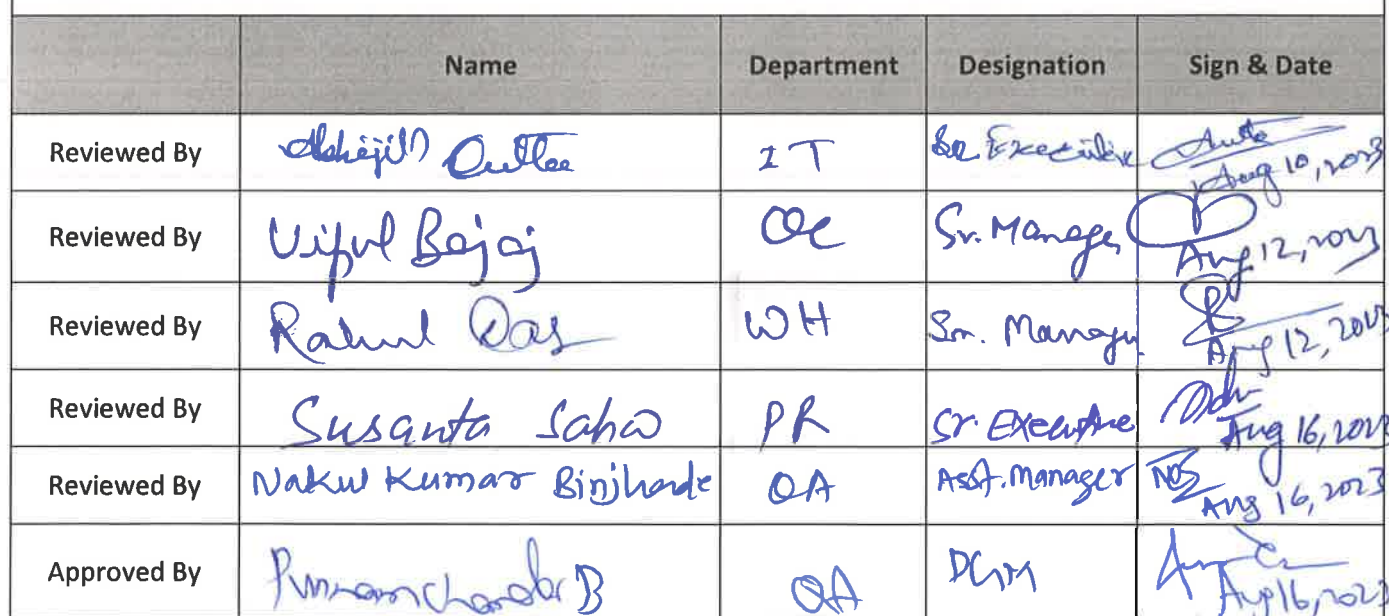 Name Department Designation Sign & Date
Reviewed By Abhijit Dutta IT Sr. Executive Aug 10, 2023
Reviewed By Vipul Bajaj QC Sr. Manager Aug 12, 2023
Reviewed By Rahul Das WH Sr. Manager Aug 12, 2023
Reviewed By Susanta Sahoo PR Sr. Executive Aug 16, 2023
Reviewed By Nakul Kumar Binjhade QA Asst. Manager Aug 16, 2023
Approved By B QA DGM Aug 16, 2023